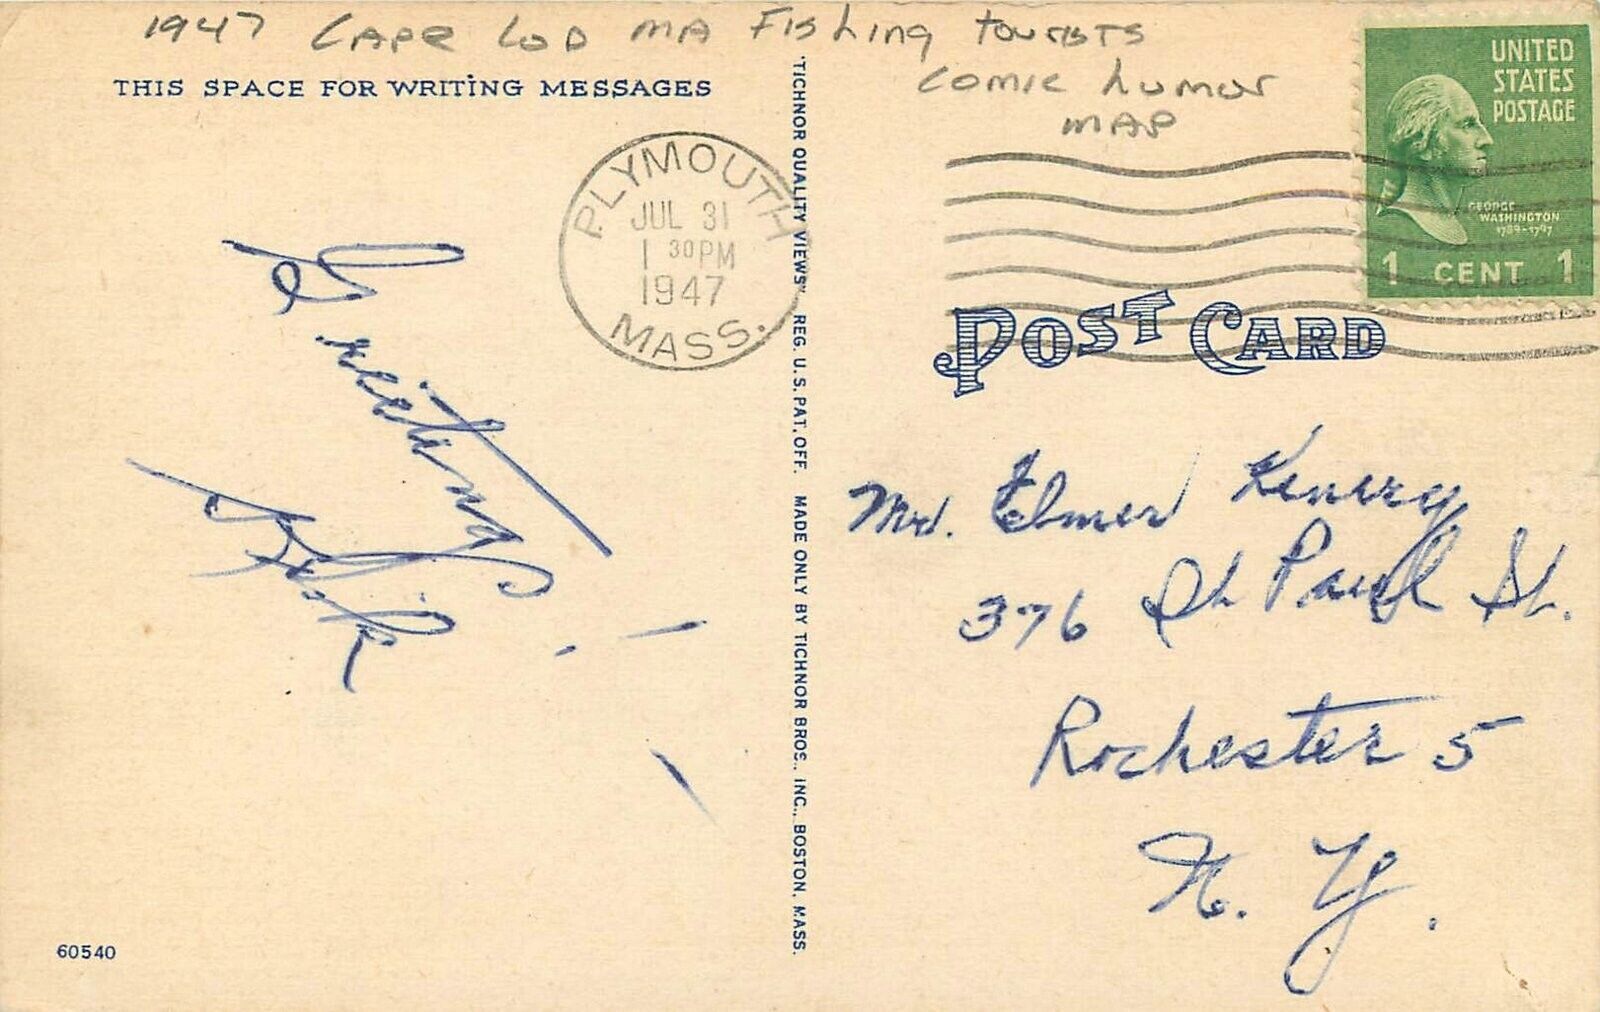 1947 CAPE COD MA FISHING TOURISTS
COMIC HUMOR
MAP
THIS SPACE FOR WRITING MESSAGES
PLYMOUTH
JUL 31
1 30 PM
1947
MASS.
UNITED
STATES
POSTAGE
GEORGE
WASHINGTON
1789-1797
1 CENT 1
POST CARD
Greetings!
Mr. Elmer Kenezy
376 St Paul St.
Rochester 5
N. Y.
"TICHNOR QUALITY VIEWS" REG. U.S. PAT. OFF. MADE ONLY BY TICHNOR BROS., INC., BOSTON, MASS.
60540